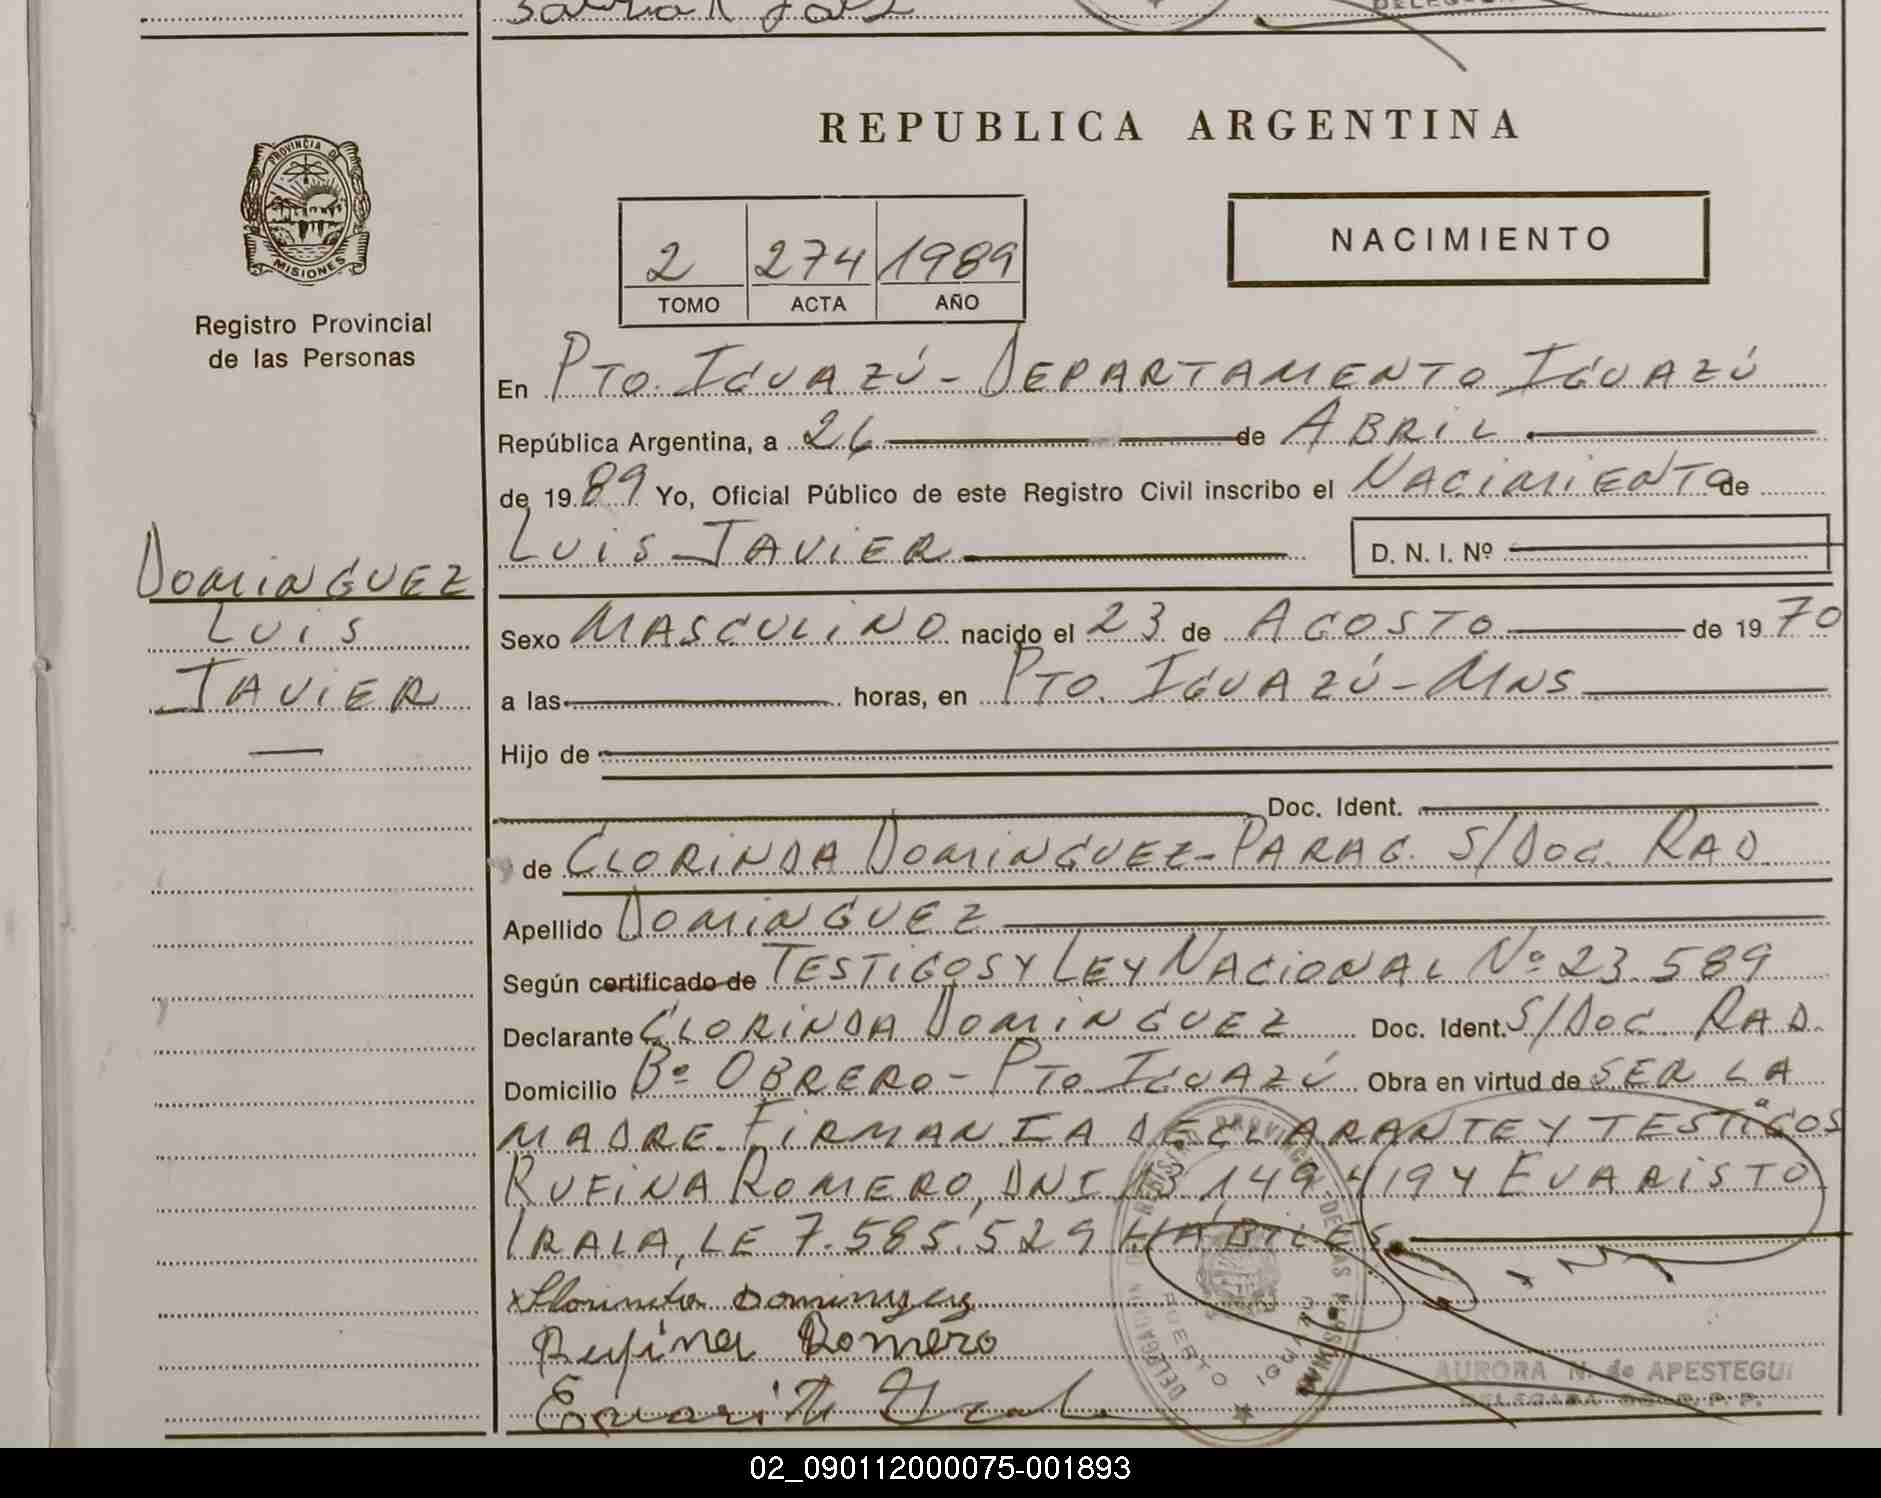 REPUBLICA ARGENTINA
PROVINCIA DE
MISIONES
Registro Provincial
de las Personas
2 274 1989
TOMO ACTA AÑO
NACIMIENTO
En PTO. IGUAZÚ - DEPARTAMENTO IGUAZÚ
República Argentina, a 26 de ABRIL
de 1989 Yo, Oficial Público de este Registro Civil inscribo el NACIMIENTO de
LUIS JAVIER D. N. I. Nº
DOMINGUEZ
LUIS
JAVIER
Sexo MASCULINO nacido el 23 de AGOSTO de 1970
a las horas, en PTO. IGUAZÚ - MNS
Hijo de
Doc. Ident.
y de CLORINDA DOMINGUEZ - PARAG. S/DOC. RAD.
Apellido DOMINGUEZ
Según certificado de TESTIGOS Y LEY NACIONAL Nº 23.589
Declarante CLORINDA DOMINGUEZ Doc. Ident. S/DOC RAD.
Domicilio Bº OBRERO - PTO IGUAZÚ Obra en virtud de SER LA
MADRE. FIRMAN LA DECLARANTE Y TESTIGOS
RUFINA ROMERO, DNI 13.149.419 Y EVARISTO
IRALA, LE 7.585.529 HABILES.
x Dominguez
Rufina Romero
AURORA N. de APESTEGUI
DELEGADA DE R.P.P.
02_090112000075-001893